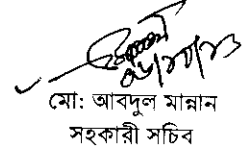 মো: আবদুল মান্নান
সহকারী সচিব